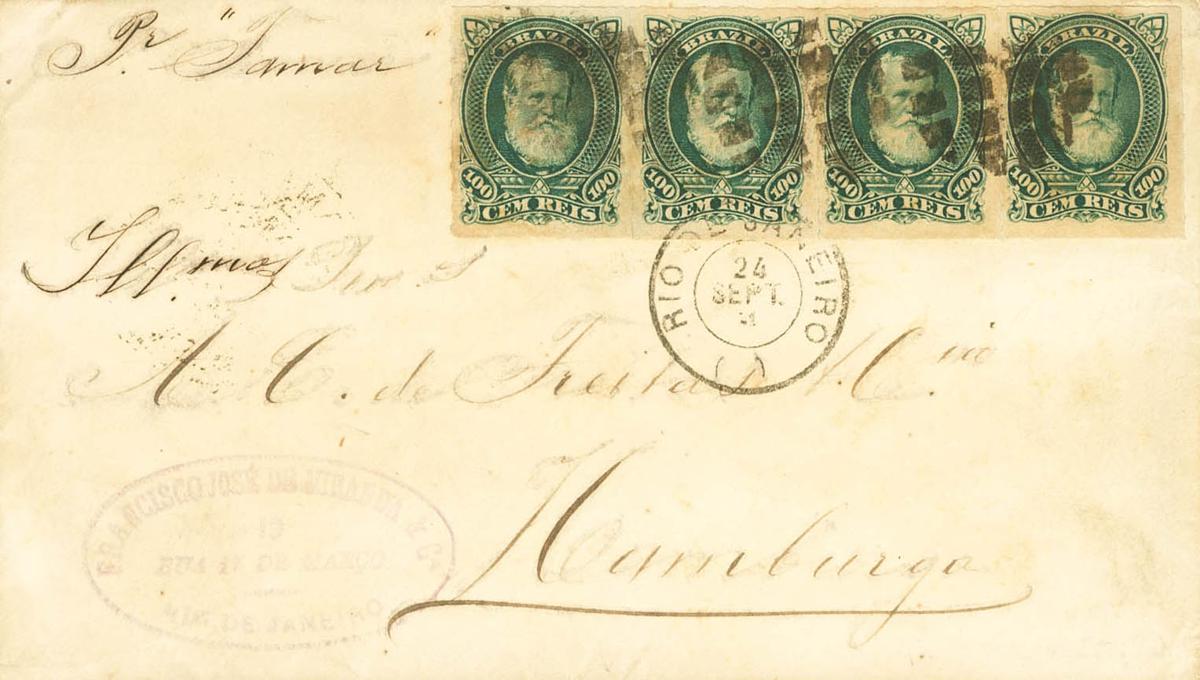 Pr "Tamar"
BRAZIL
100 100
CEM REIS
BRAZIL
100 100
CEM REIS
BRAZIL
100 100
CEM REIS
BRAZIL
100 100
CEM REIS
RIO DE JANEIRO
24
SEPT.
Illmos
A. C. de Freitas
Hamburgo
FRANCISCO JOSÉ DE MIRANDA & Ca
19
RUA 1º DE MARÇO
RIO DE JANEIRO